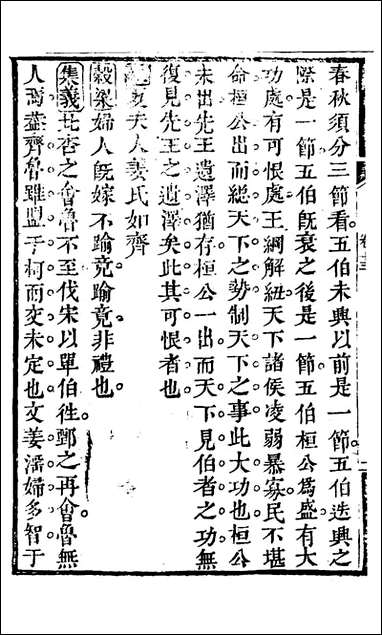 春秋須分三節看五伯未興以前是一節五伯迭興之
際是一節五伯旣衰之後是一節五伯桓公爲盛有大
功處有可恨處王綱解紐天下諸侯凌弱暴寡民不堪
命桓公出而總天下之勢制天下之事此大功也桓公
未出先王遺澤猶存桓公一出而天下見伯者之功無
復見先王之遺澤矣此其可恨者也
夫人姜氏如齊
穀梁婦人旣嫁不踰竟踰竟非禮也
集義北杏之會魯不至伐宋以單伯徃鄄之再會魯無
人焉蓋齊魯雖盟于柯而交未定也文姜淫婦多智于